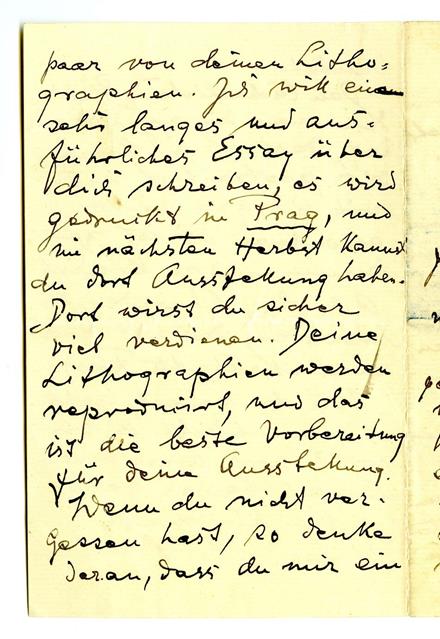 paar von deinen Litho-
graphien. Ich will einen
sehr langes und aus-
führliches Essay über
dich schreiben, es wird
gedruckt in Prag, und
im nächsten Herbst kannst
du dort Ausstellung haben.
Dort wirst du sicher
viel verdienen. Deine
Lithographien werden
reproduziert, und das
ist die beste Vorbereitung
für deine Ausstellung.
Wenn du nicht ver-
gessen hast, so denke
daran, dass du mir ein